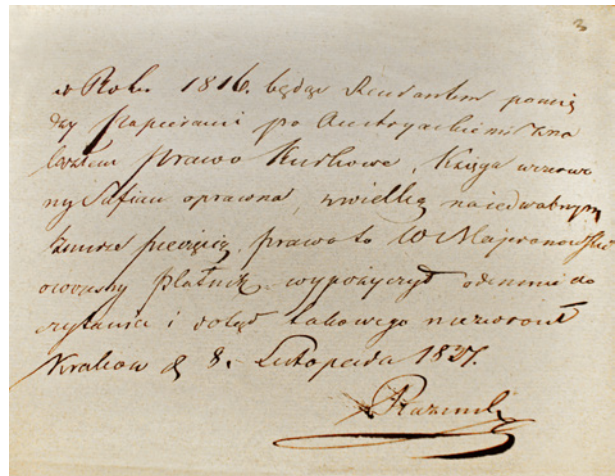 3
w Roku 1816. będąc Rendantem pomię
dzy Papierami po Austryackiemi zna
lazłem Prawo Kurkowe, Księga w czerwo
ny Safian oprawna, z wielką na jedwabnym
sznurze pieczęcią, prawo to W Majeranowski
owczesny Płatnik wypożyczył odemnie do
czytania i dotąd takowego niezwrócił
Kraków d 8. Listopada 1837.